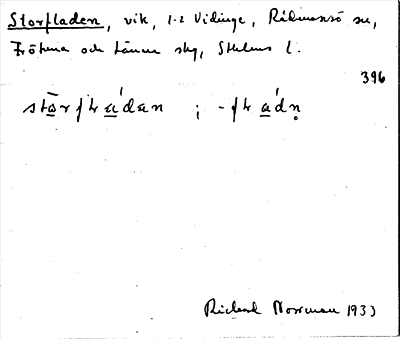 Storfladen, vik, 1-2 Vidinge, Rådmansö sn,
Frötuna och Länna skg, Sthlms l.
396
stōrfladan ; -fladn̥
Rickard Norrman 1933